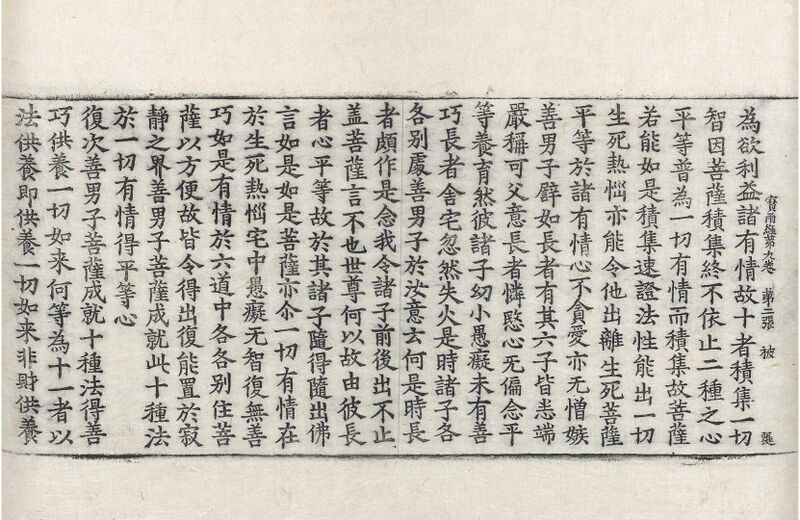 為欲利益諸有情故十者積集一切
寶雨經第九卷　第二張　被
智因菩薩積集終不依止二種之心
平等普為一切有情而積集故菩薩
若能如是積集速證法性能出一切
生死熱惱亦能令他出離生死菩薩
平等於諸有情心不貪愛亦无憎嫉
善男子譬如長者有其六子皆悉端
嚴稱可父意長者憐愍心无偏念平
等養育然彼諸子幼小愚癡未有善
巧長者舍宅忽然失火是時諸子各
各別處善男子於汝意云何是時長
者頗作是念我令諸子前後出不止
盖菩薩言不也世尊何以故由彼長
者心平等故於其諸子隨得隨出佛
言如是如是菩薩亦尒一切有情在
於生死熱惱宅中愚癡无智復無善
巧如是有情於六道中各各別住菩
薩以方便故皆令得出復能置於寂
靜之界善男子菩薩成就此十種法
於一切有情得平等心
復次善男子菩薩成就十種法得善
巧供養一切如来何等為十一者以
法供養即供養一切如来非財供養